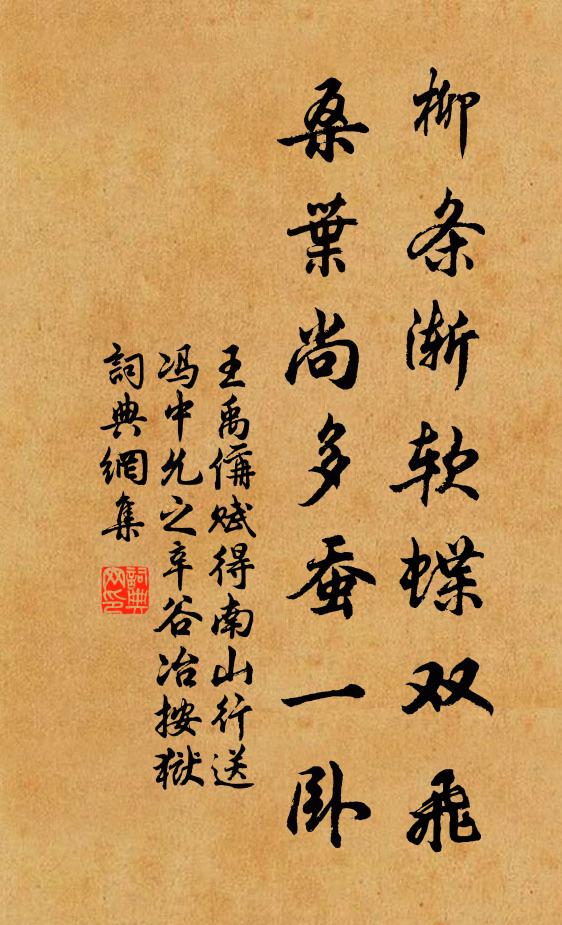 柳条渐软蝶双飞
桑葉尚多蚕一卧
王禹偁赋得南山行送
冯中允之辛谷冶按獄
詞典網集
詞典网印